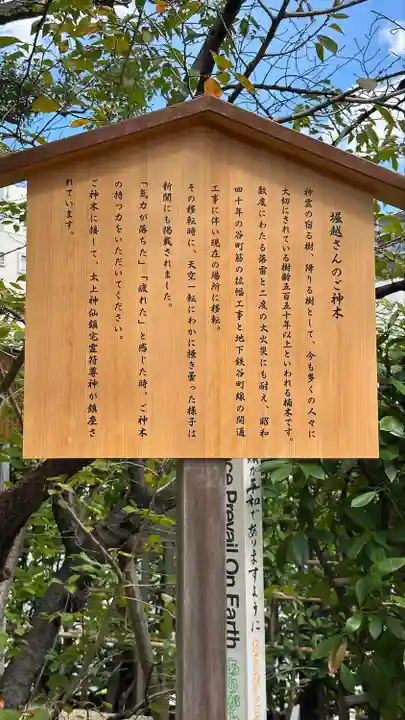 堀越さんのご神木
神霊の宿る樹、降りる樹として、今も多くの人々に
大切にされている樹齢五百五十年以上といわれる楠木です。
数度にわたる落雷と二度の大火災にも耐え、昭和
四十年の谷町筋の拡幅工事と地下鉄谷町線の開通
工事に伴い現在の場所に移転。
その移転時に、天空一転にわかに掻き曇った様子は
新聞にも掲載されました。
「気力が落ちた」「疲れた」と感じた時、ご神木
の持つ力をいただいてください。
ご神木に接して、太上神仙鎮宅霊符尊神が鎮座さ
れています。
が平和でありますように
ce Prevail On Earth